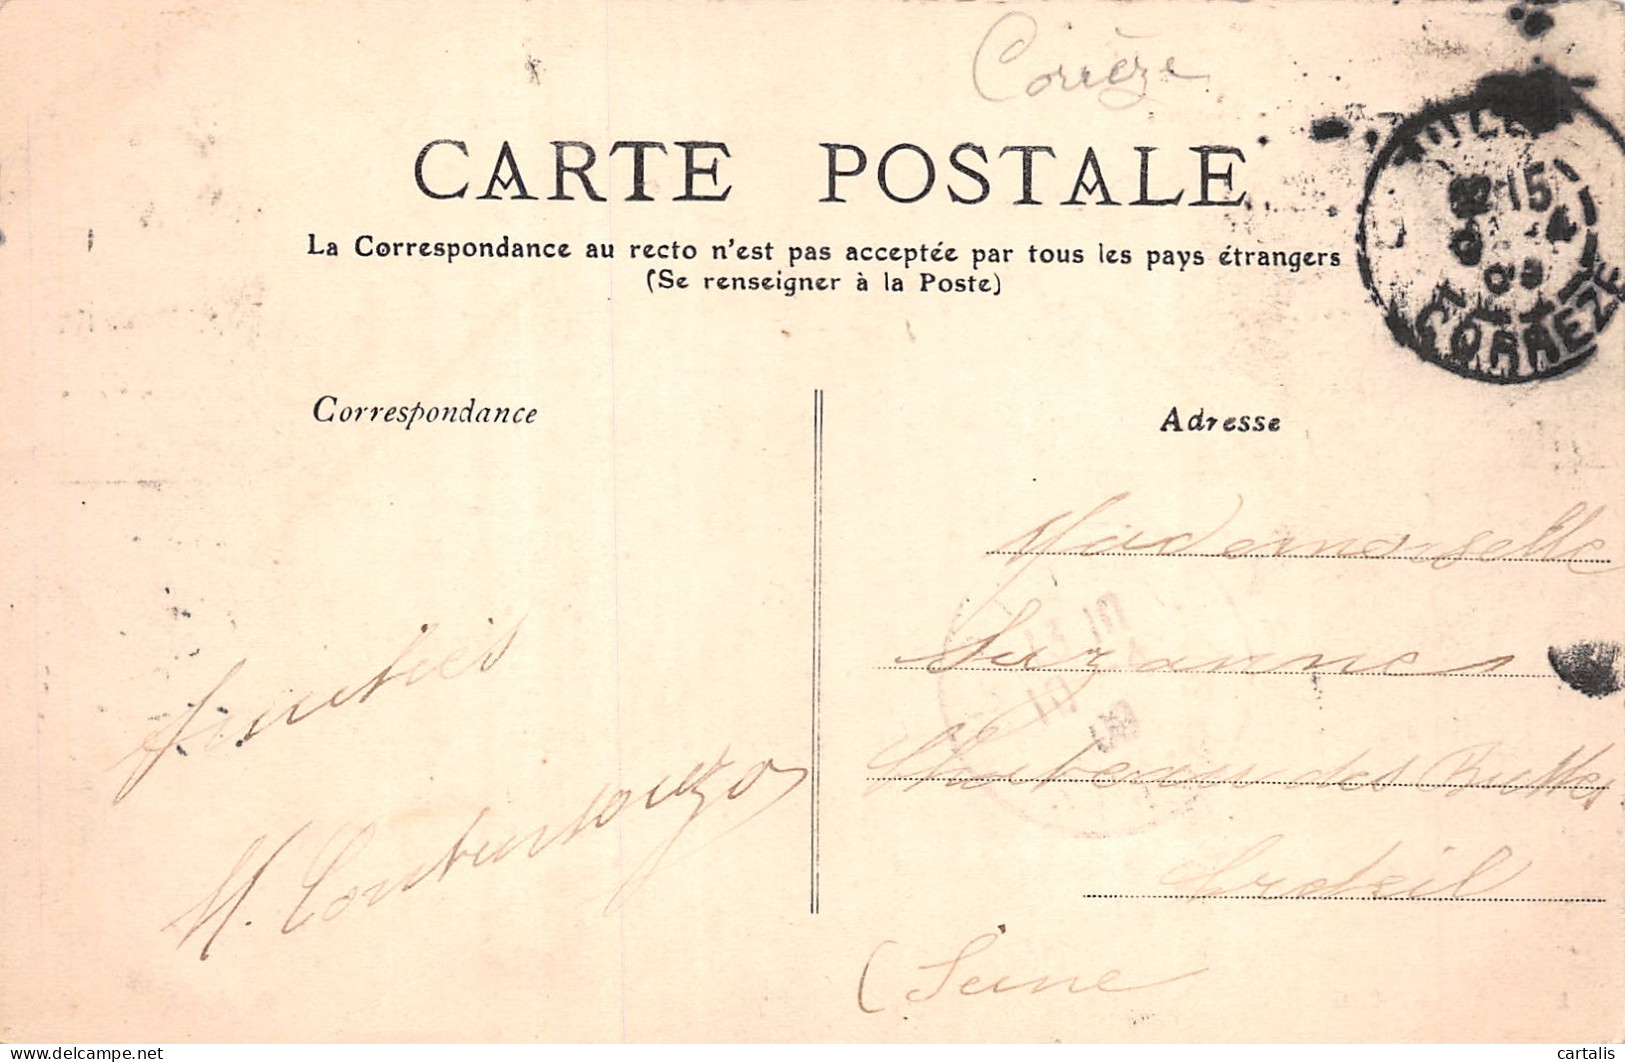 Corrèze
CARTE POSTALE
La Correspondance au recto n'est pas acceptée par tous les pays étrangers
(Se renseigner à la Poste)
15
CORREZE
Correspondance
Adresse
Mademoiselle
Suzanne
Chateau des Buttes
Creteil
(Seine
Amitiés
M.
delcampe.net
cartalis